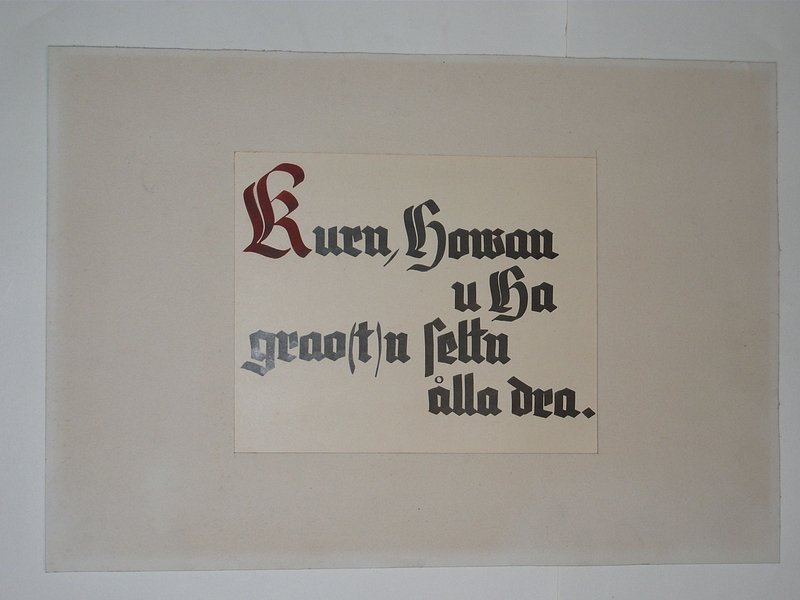 Kurn, Howan
u Ha
grao(t)n seltn
ålla dra.